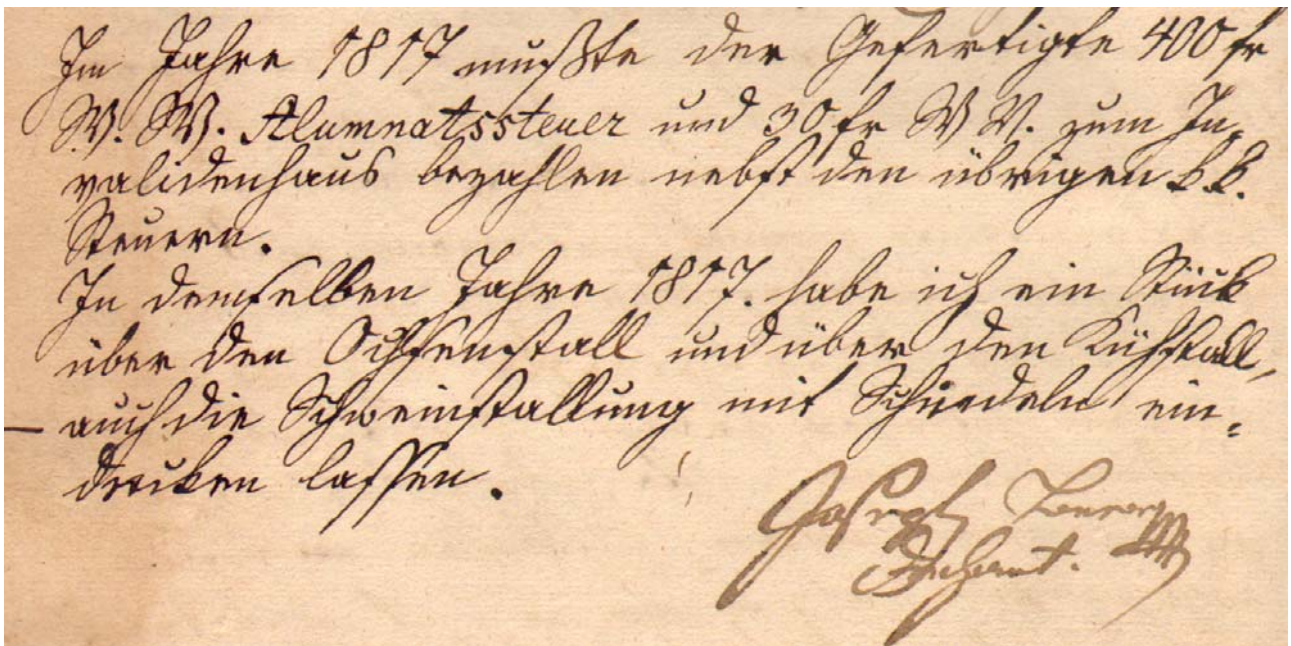 Im Jahre 1817 mußte der Gefertigte 400 fr
W. W. Alumnatssteuer und 30 fr W W. zum In,
validenhaus bezahlen nebst den übrigen k k.
Steuern.
In demselben Jahre 1817. habe ich ein Stück
über den Ochsenstall und über den Kühstall,
auch die Schweinstallung mit Schindeln ein,
decken lassen.
Joseph
Dechant.